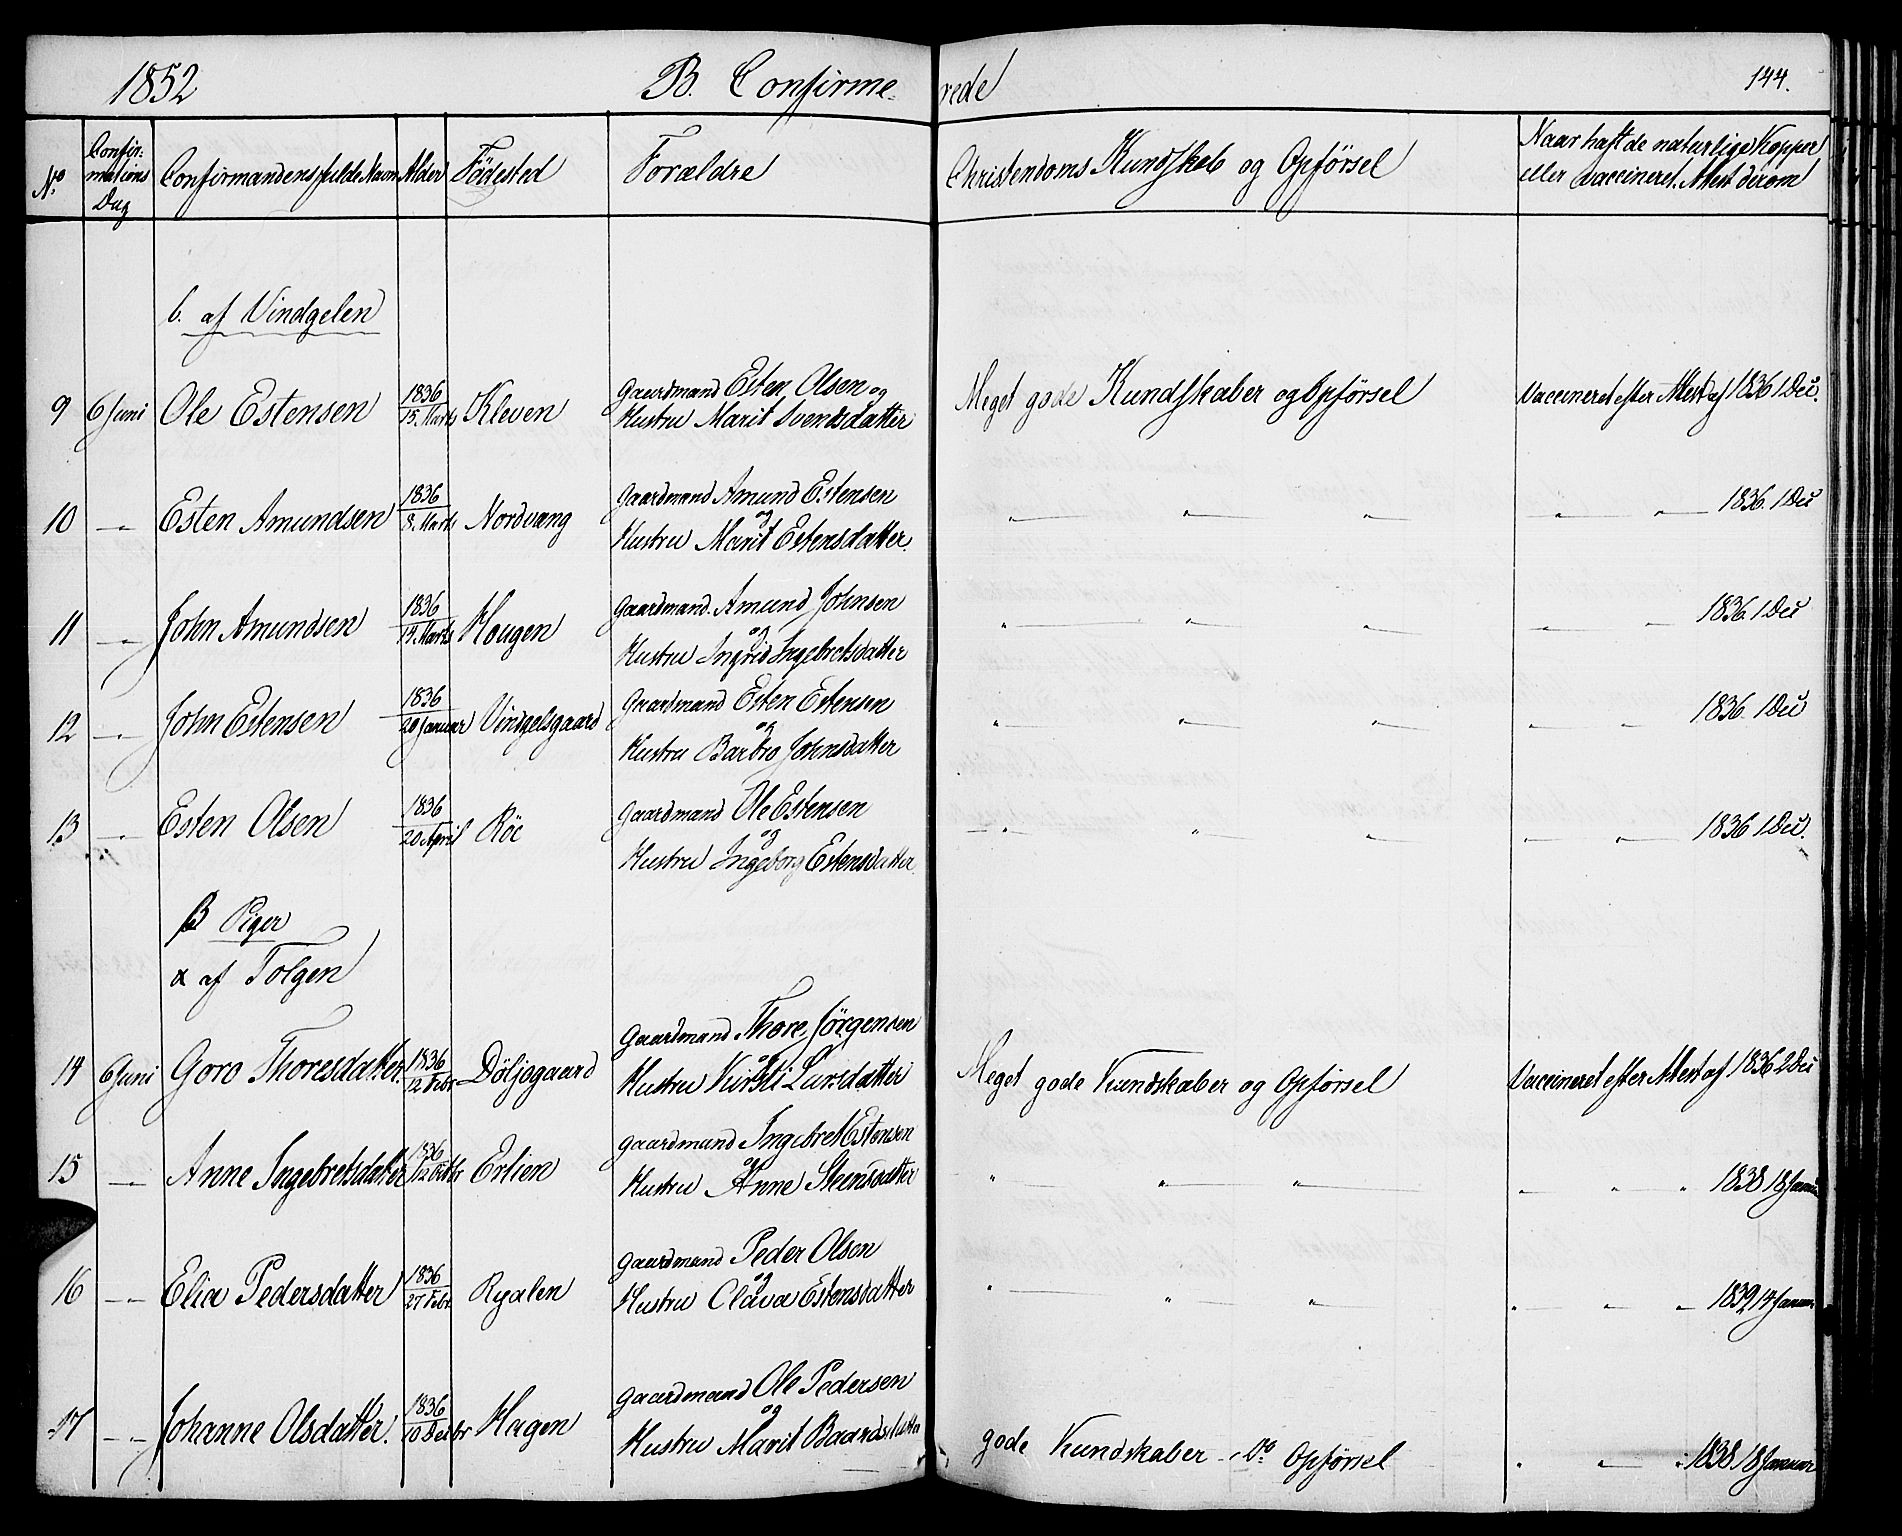 1852 B. Confirmerede 144.
No Confirmations Dag Confirmandens fulde Navn Alder Fødested Forældre Christendoms Kundskab og Opførsel Naar haft de naturlige Kopper eller vaccineret. Attest derom
b. af Vindgelen
9 6 Juni Ole Estensen 1836 15. Marts Kleven Gaardmand Esten Olsen og Meget gode Kundskaber og Opførsel Vaccineret efter Attest af 1836 1 Dec.
Hustru Marit Svendsdatter
10 — " — Esten Amundsen 1836 8. Marts Nordvang Gaardmand Amund Estensen og " " " " " 1836. 1 Dec
Hustru Marit Estensdatter.
11 — " — John Amundsen 1836 14. Marts Hougen Gaardmand. Amund Johnsen og " " " " " 1836. 1 Dec
Hustru Ingrid Ingebretsdatter
12 — " — John Estensen 1836 20 Januar Vingelsgaard Gaardmand Esten Estensen og " " " " " 1836. 1 Dec
Hustru Barbro Johnsdatter
13 — " — Esten Olsen 1836 20 April Röe Gaardmand Ole Estensen og " " " " " 1836 1 Dec.
Hustru Ingeborg Estensdatter
β Piger
α af Tolgen
14 6 Juni Goro Thoresdatter. 1836 12 Febr Döljegaard Gaardmand Thore Jörgensen og Meget gode Kundskaber og Opførsel Vaccineret efter Attest af 1836 2 Dec
Hustru Kirsti Larsdatter
15 — " — Anne Ingebretsdatter 1836 12 Erlien Gaardmand Ingebret Estensen og " " " " " " 1838 18 Januar
Hustru Anne Steensdatter
16 — " — Elia Pedersdatter 1836 27 Febr. Ryalen Gaardmand Peder Olsen og " " " " " " 1839 14 Januar
Hustru Clava Estensdatter
17 — " — Johanne Olsdatter. 1836 10 Decbr Hagen Gaardmand Ole Pedersen og gode Kundskaber - Do Opførsel " " " 1838 18 Januar
Hustru Marit Baardsdatter